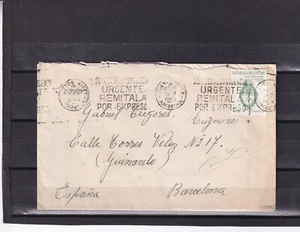 URGENTE
REMITALA
POR EXPRESO
URGENTE
REMITALA
POR EXPRESO
REPUBLICA ARGENTINA
Gabriel Cugores.
Calle Torres Velez Nº 17.
(Guinardó)
España Barcelona